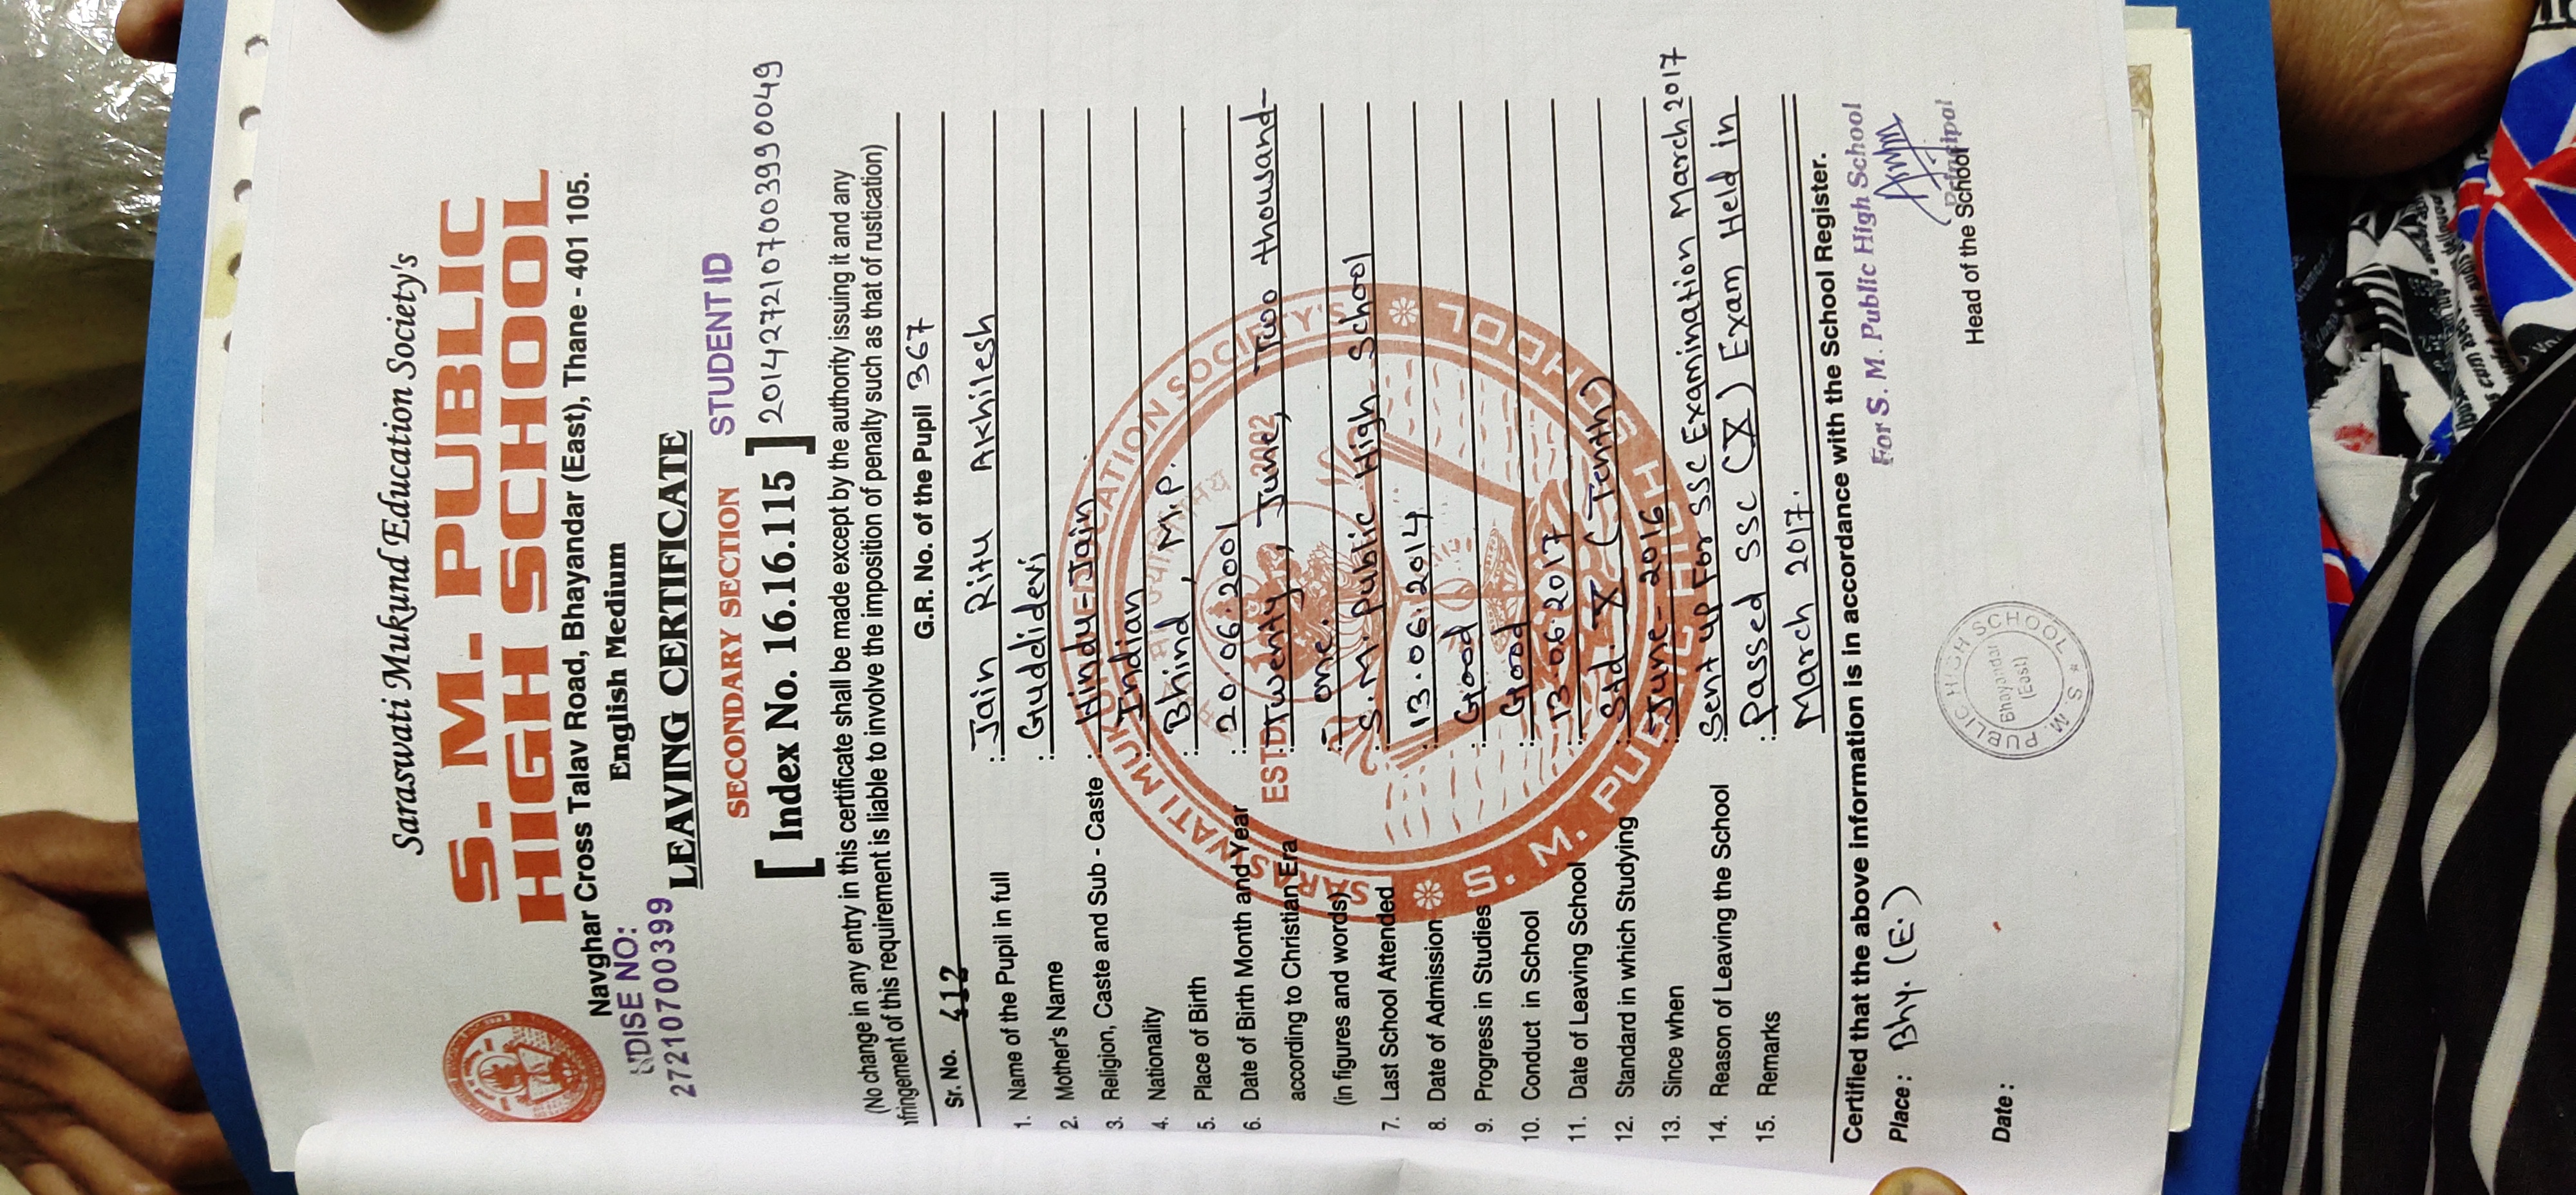 Saraswati Mukund Education Society's
S. M. PUBLIC
HIGH SCHOOL
Navghar Cross Talav Road, Bhayandar (East), Thane - 401 105.
English Medium
UDISE NO:
27210700399
LEAVING CERTIFICATE
SECONDARY SECTION
STUDENT ID
[ Index No. 16.16.115 ] 2014272107003990049
(No change in any entry in this certificate shall be made except by the authority issuing it and any
nfringement of this requirement is liable to involve the imposition of penalty such as that of rustication)
Sr. No. 412 G.R. No. of the Pupil 367
1. Name of the Pupil in full : Jain Ritu Akhilesh
2. Mother's Name : Guddidevi
3. Religion, Caste and Sub - Caste : Hindu-Jain
4. Nationality : Indian
5. Place of Birth : Bhind, M.P.
6. Date of Birth Month and Year : 20.06.2001
according to Christian Era : Twenty, June, Two thousand-
(in figures and words) : one.
7. Last School Attended : S.M. Public High School
8. Date of Admission : 13.06.2014
9. Progress in Studies : Good
10. Conduct in School : Good
11. Date of Leaving School : 13.06.2017
12. Standard in which Studying : Std. X (Tenth)
13. Since when : June-2016
14. Reason of Leaving the School : Sent up For SSC Examination March 2017
15. Remarks : Passed SSC (X) Exam Held in
March 2017.
Certified that the above information is in accordance with the School Register.
Place : Bhy. (E.)
For S. M. Public High School
Principal
Head of the School
Date :
SARASWATI MUKUND EDUCATION SOCIETY'S
ESTD. 2002
S. M. PUBLIC HIGH SCHOOL
S. M. PUBLIC HIGH SCHOOL
Bhayandar
(East)